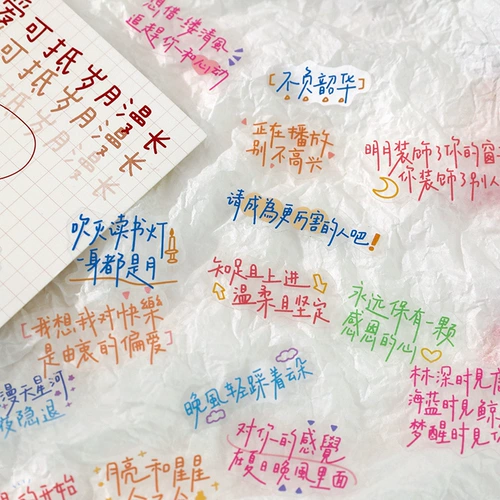 爱可抵岁月漫长
可抵岁月漫长
可抵岁月漫长
想借一缕清風
追趕你一和心动
[不负韶华]
正在播放
别不高兴
明月装饰了你的窗
你装饰了别人
请成為更厉害的人吧!
吹灭读书灯
一身都是月
知足且上进
温柔且坚定
[我想我对快樂
是由衷的偏爱]
永远保有一顆
感恩的心
漫天星河
夜隐退
晚風轻踩着云朵
林深时見
海蓝时見鲸
梦醒时見
对你的感覺
在夏日晚風里面
的开始
月亮和星星